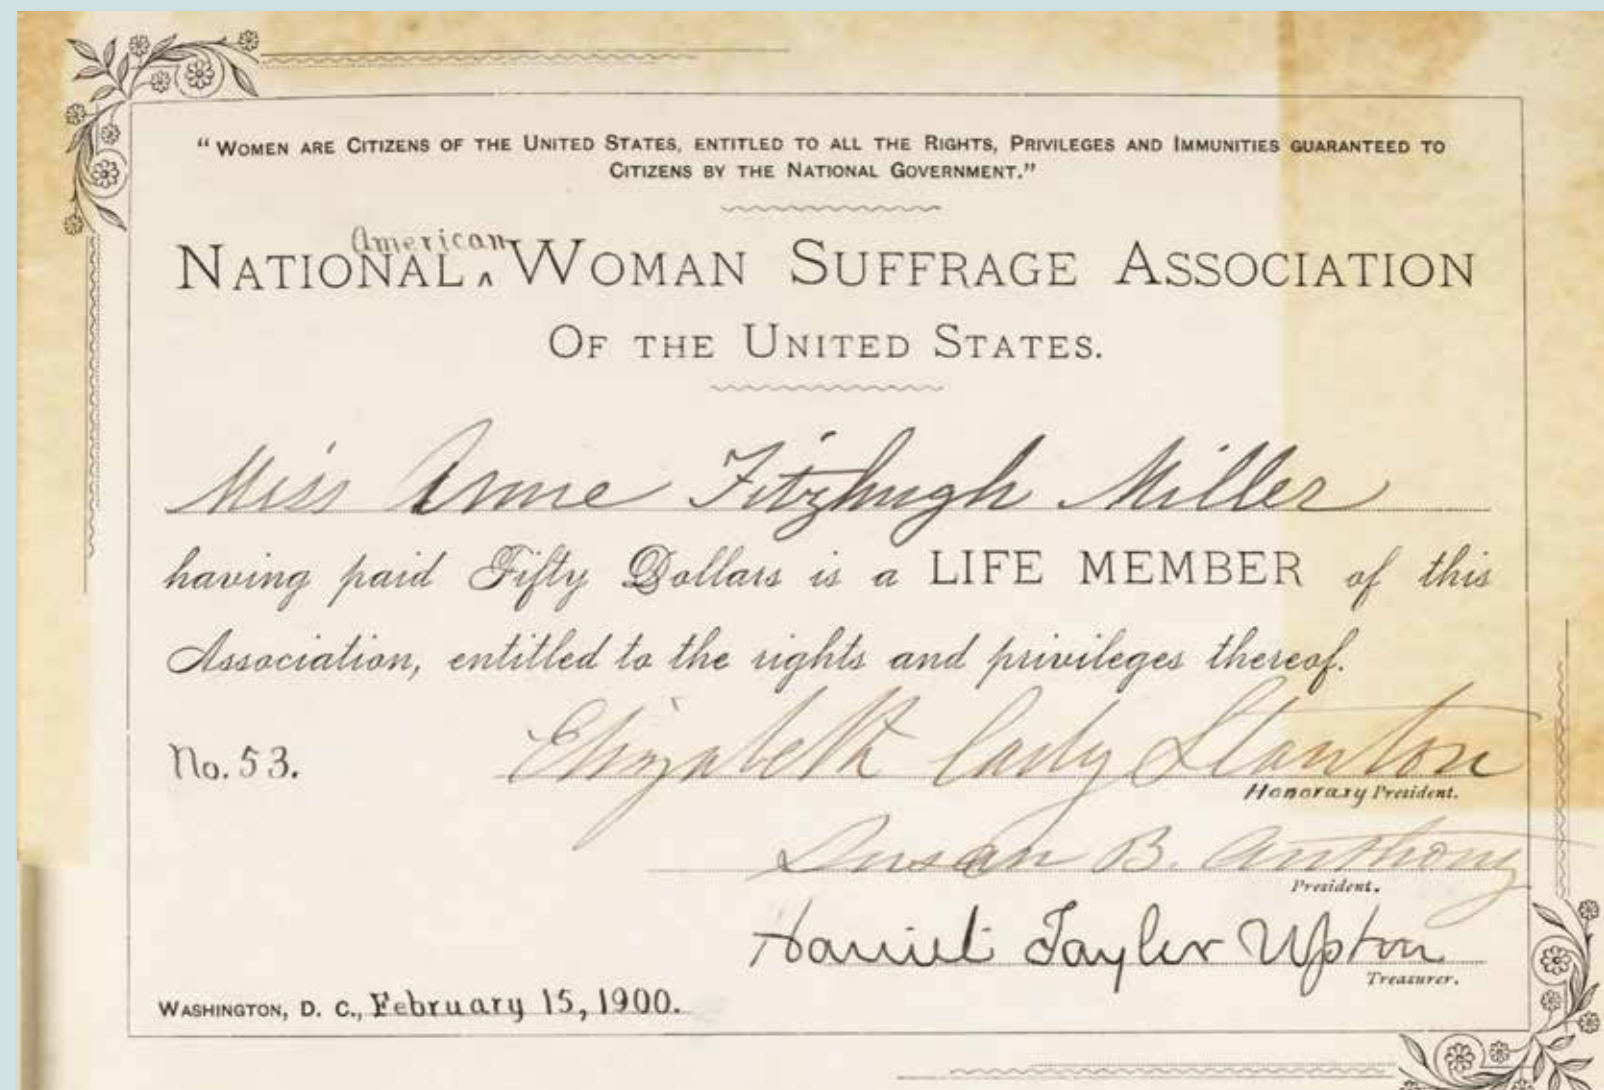 "WOMEN ARE CITIZENS OF THE UNITED STATES, ENTITLED TO ALL THE RIGHTS, PRIVILEGES AND IMMUNITIES GUARANTEED TO
CITIZENS BY THE NATIONAL GOVERNMENT."
American
NATIONAL ^ WOMAN SUFFRAGE ASSOCIATION
OF THE UNITED STATES.
Miss Anne Fitzhugh Miller
having paid Fifty Dollars is a LIFE MEMBER of this
Association, entitled to the rights and privileges thereof.
No. 53. Elizabeth Cady Stanton
Honorary President.
Susan B. Anthony
President.
Harriet Taylor Upton
Treasurer.
WASHINGTON, D. C., February 15, 1900.